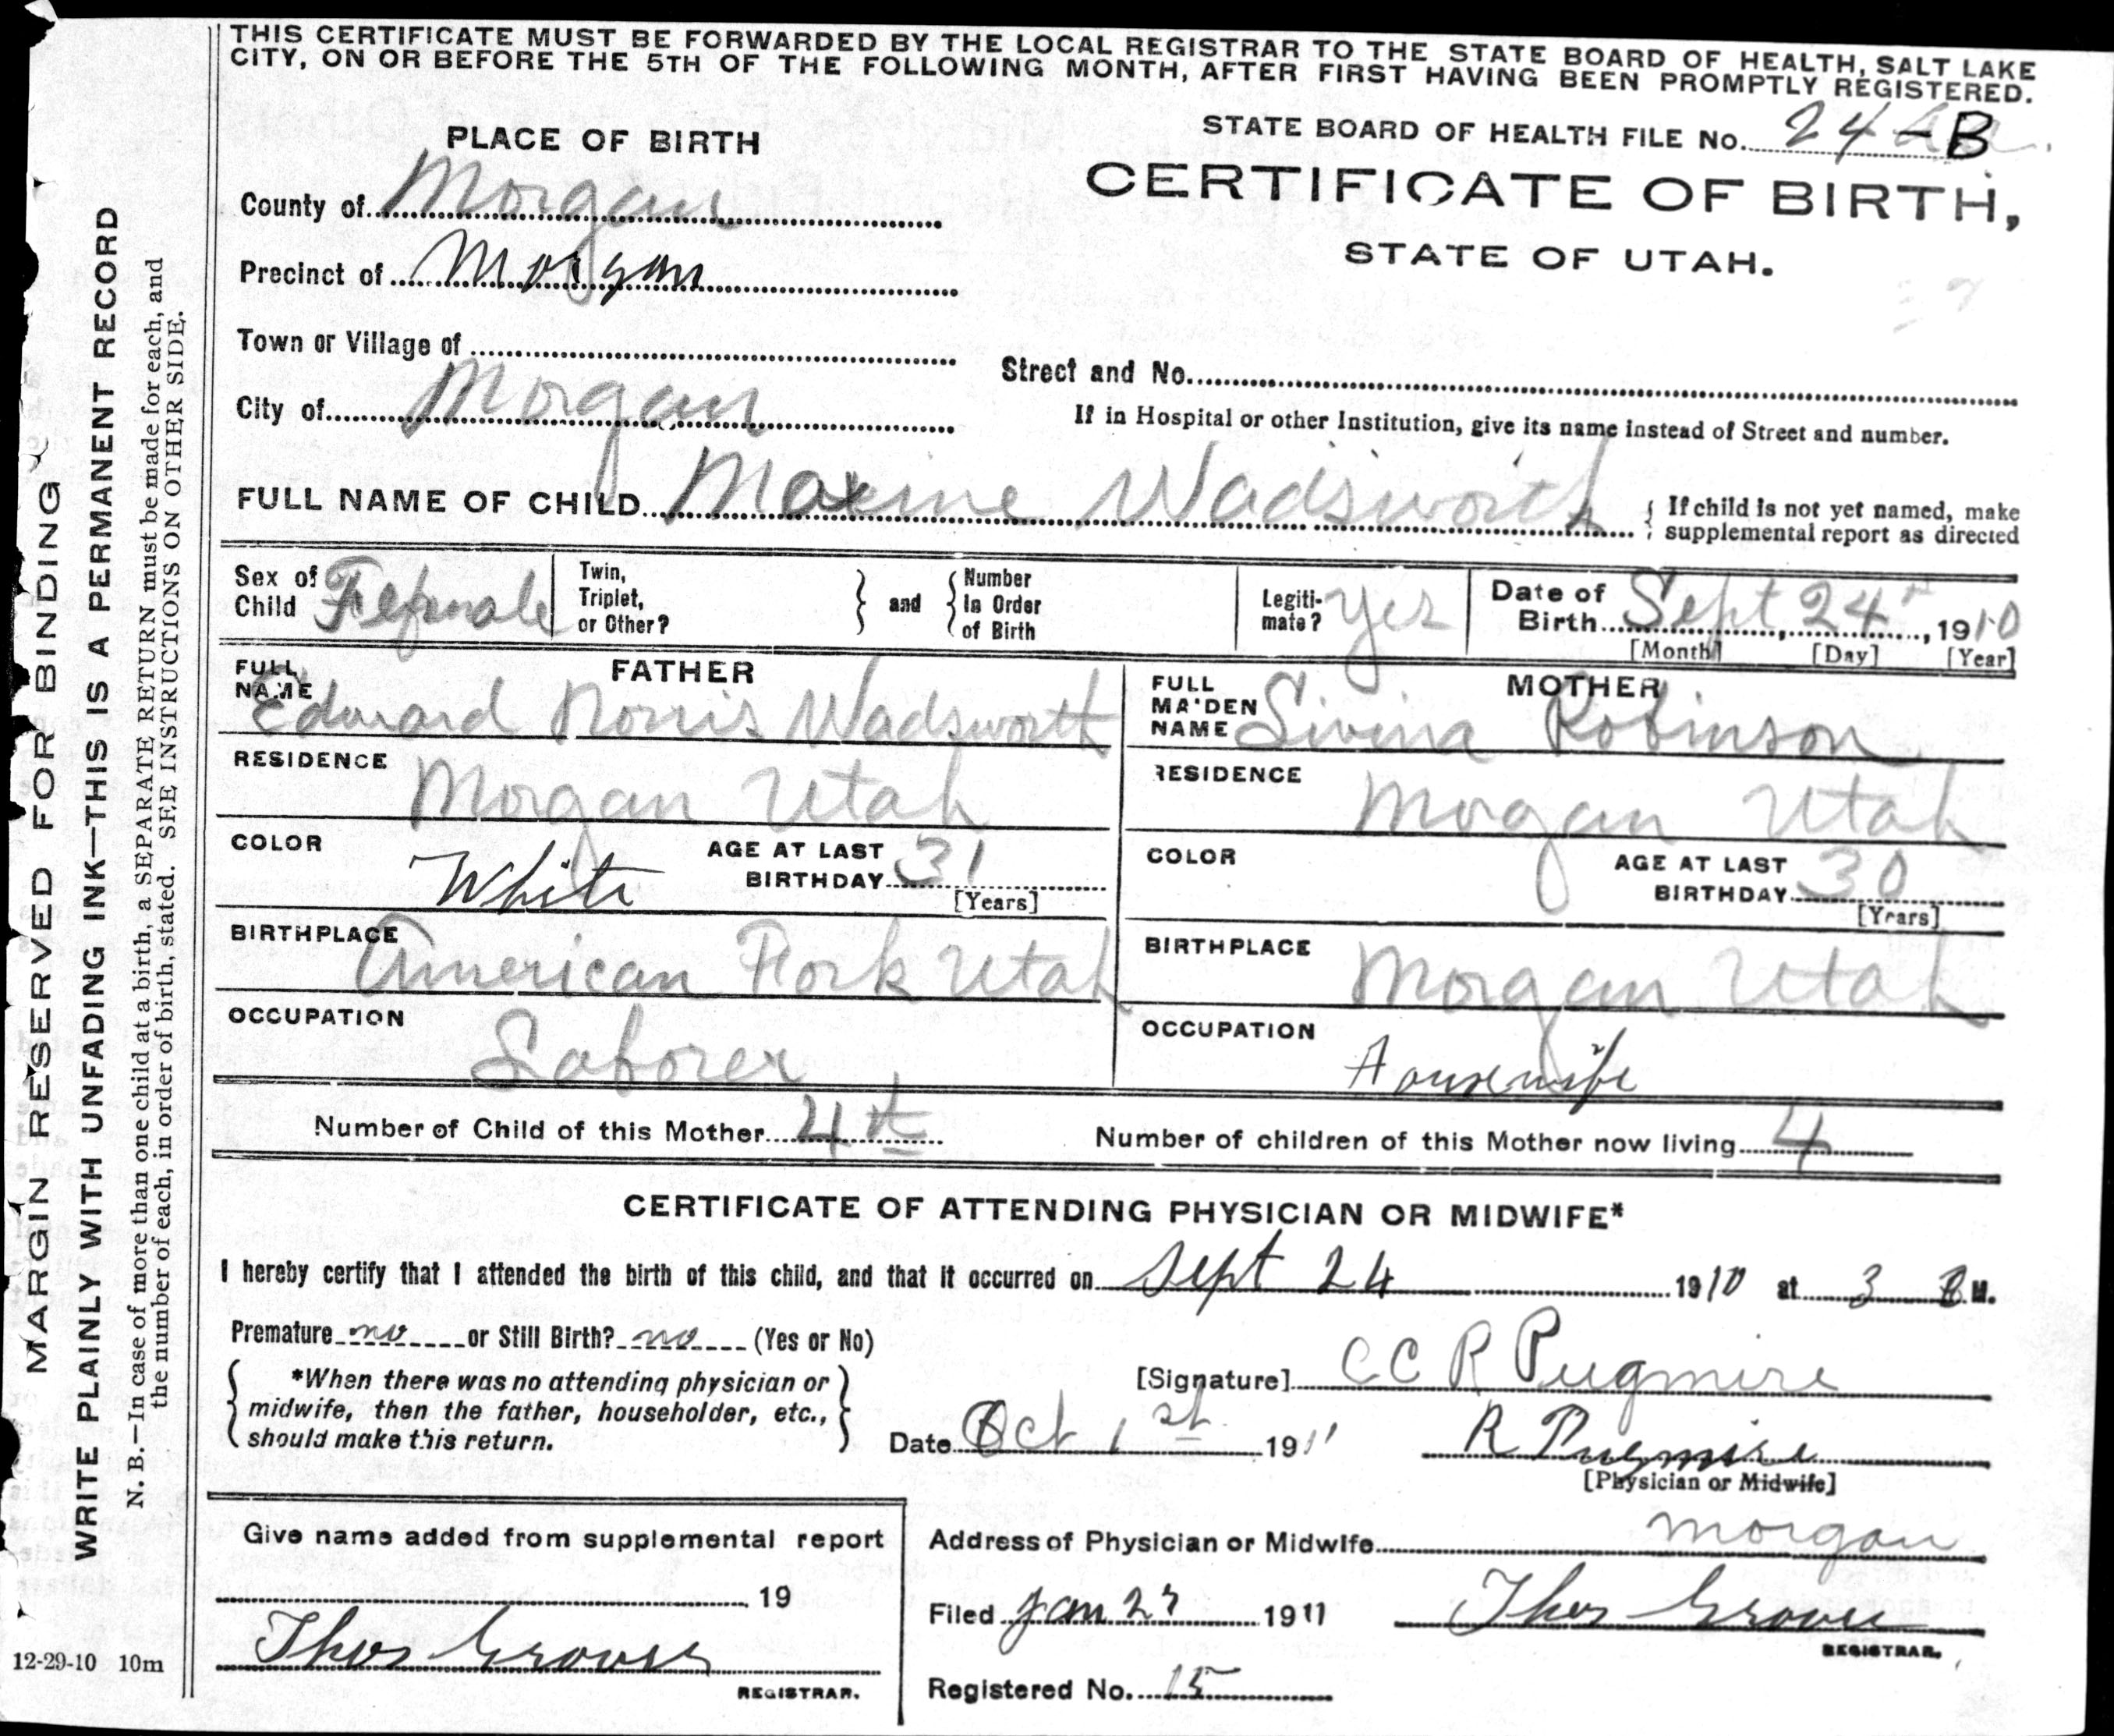 THIS CERTIFICATE MUST BE FORWARDED BY THE LOCAL REGISTRAR TO THE STATE BOARD OF HEALTH, SALT LAKE
CITY, ON OR BEFORE THE 5TH OF THE FOLLOWING MONTH, AFTER FIRST HAVING BEEN PROMPTLY REGISTERED.
STATE BOARD OF HEALTH FILE No. 24-B
PLACE OF BIRTH
CERTIFICATE OF BIRTH,
STATE OF UTAH.
County of Morgan
Precinct of Morgan
Town or Village of
Street and No.
City of Morgan
If in Hospital or other Institution, give its name instead of Street and number.
FULL NAME OF CHILD Maxine Wadsworth { If child is not yet named, make
supplemental report as directed
Sex of Child Female
Twin, Triplet, or Other? } and { Number in Order of Birth
Legiti-mate? Yes
Date of Birth Sept 24, 1910
[Month] [Day] [Year]
FATHER
FULL NAME Edward Norris Wadsworth
MOTHER
FULL MAIDEN NAME Sivina Robinson
RESIDENCE Morgan Utah
RESIDENCE Morgan Utah
COLOR White AGE AT LAST BIRTHDAY 31 [Years]
COLOR AGE AT LAST BIRTHDAY 30 [Years]
BIRTHPLACE American Fork Utah
BIRTHPLACE Morgan Utah
OCCUPATION Laborer
OCCUPATION Housewife
Number of Child of this Mother 4th Number of children of this Mother now living 4
CERTIFICATE OF ATTENDING PHYSICIAN OR MIDWIFE*
I hereby certify that I attended the birth of this child, and that it occurred on Sept 24 1910 at 3 M.
Premature no or Still Birth? no (Yes or No)
*When there was no attending physician or
midwife, then the father, householder, etc.,
should make this return.
[Signature] C C R Pugmire
Date Oct 1st 1911
R Pugmire
[Physician or Midwife]
Give name added from supplemental report
19
Thos Grover
REGISTRAR.
Address of Physician or Midwife Morgan
Filed Jan 27 1911 Thos Grover
REGISTRAR.
Registered No. 15
MARGIN RESERVED FOR BINDING
WRITE PLAINLY WITH UNFADING INK—THIS IS A PERMANENT RECORD
N. B.—In case of more than one child at a birth, a SEPARATE RETURN must be made for each, and
the number of each, in order of birth, stated. SEE INSTRUCTIONS ON OTHER SIDE.
12-29-10 10m